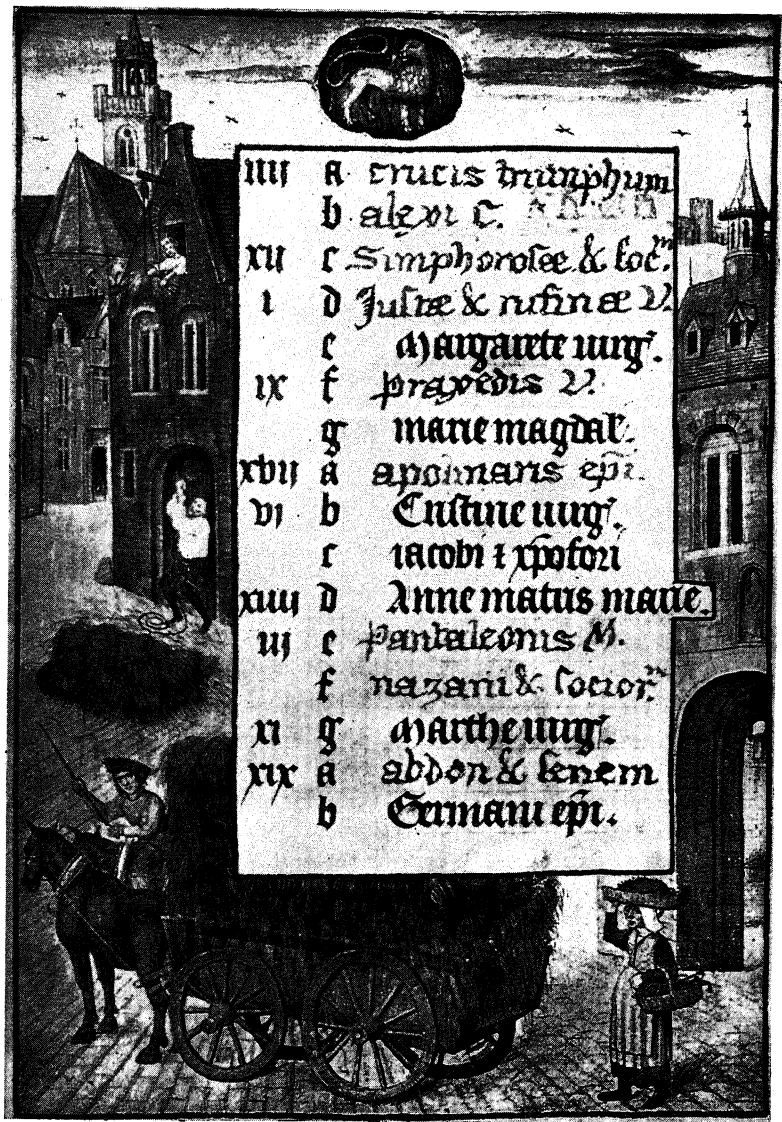 iiij a crucis triumphum
b alexii C.
xij c Simphorosæ & soc.m
i d Justæ & rufinæ V.
e Margarete uirg.
ix f praxedis V.
g marie magdal.
xvij a apolinaris epi.
vj b Cristine uirg.
c iacobi ⁊ xpofori
xiiij d Anne matris marie.
iij e pantaleonis M.
f nazarii & socior.
xj g Marthe uirg.
xix a abdon & senem
b Germani epi.